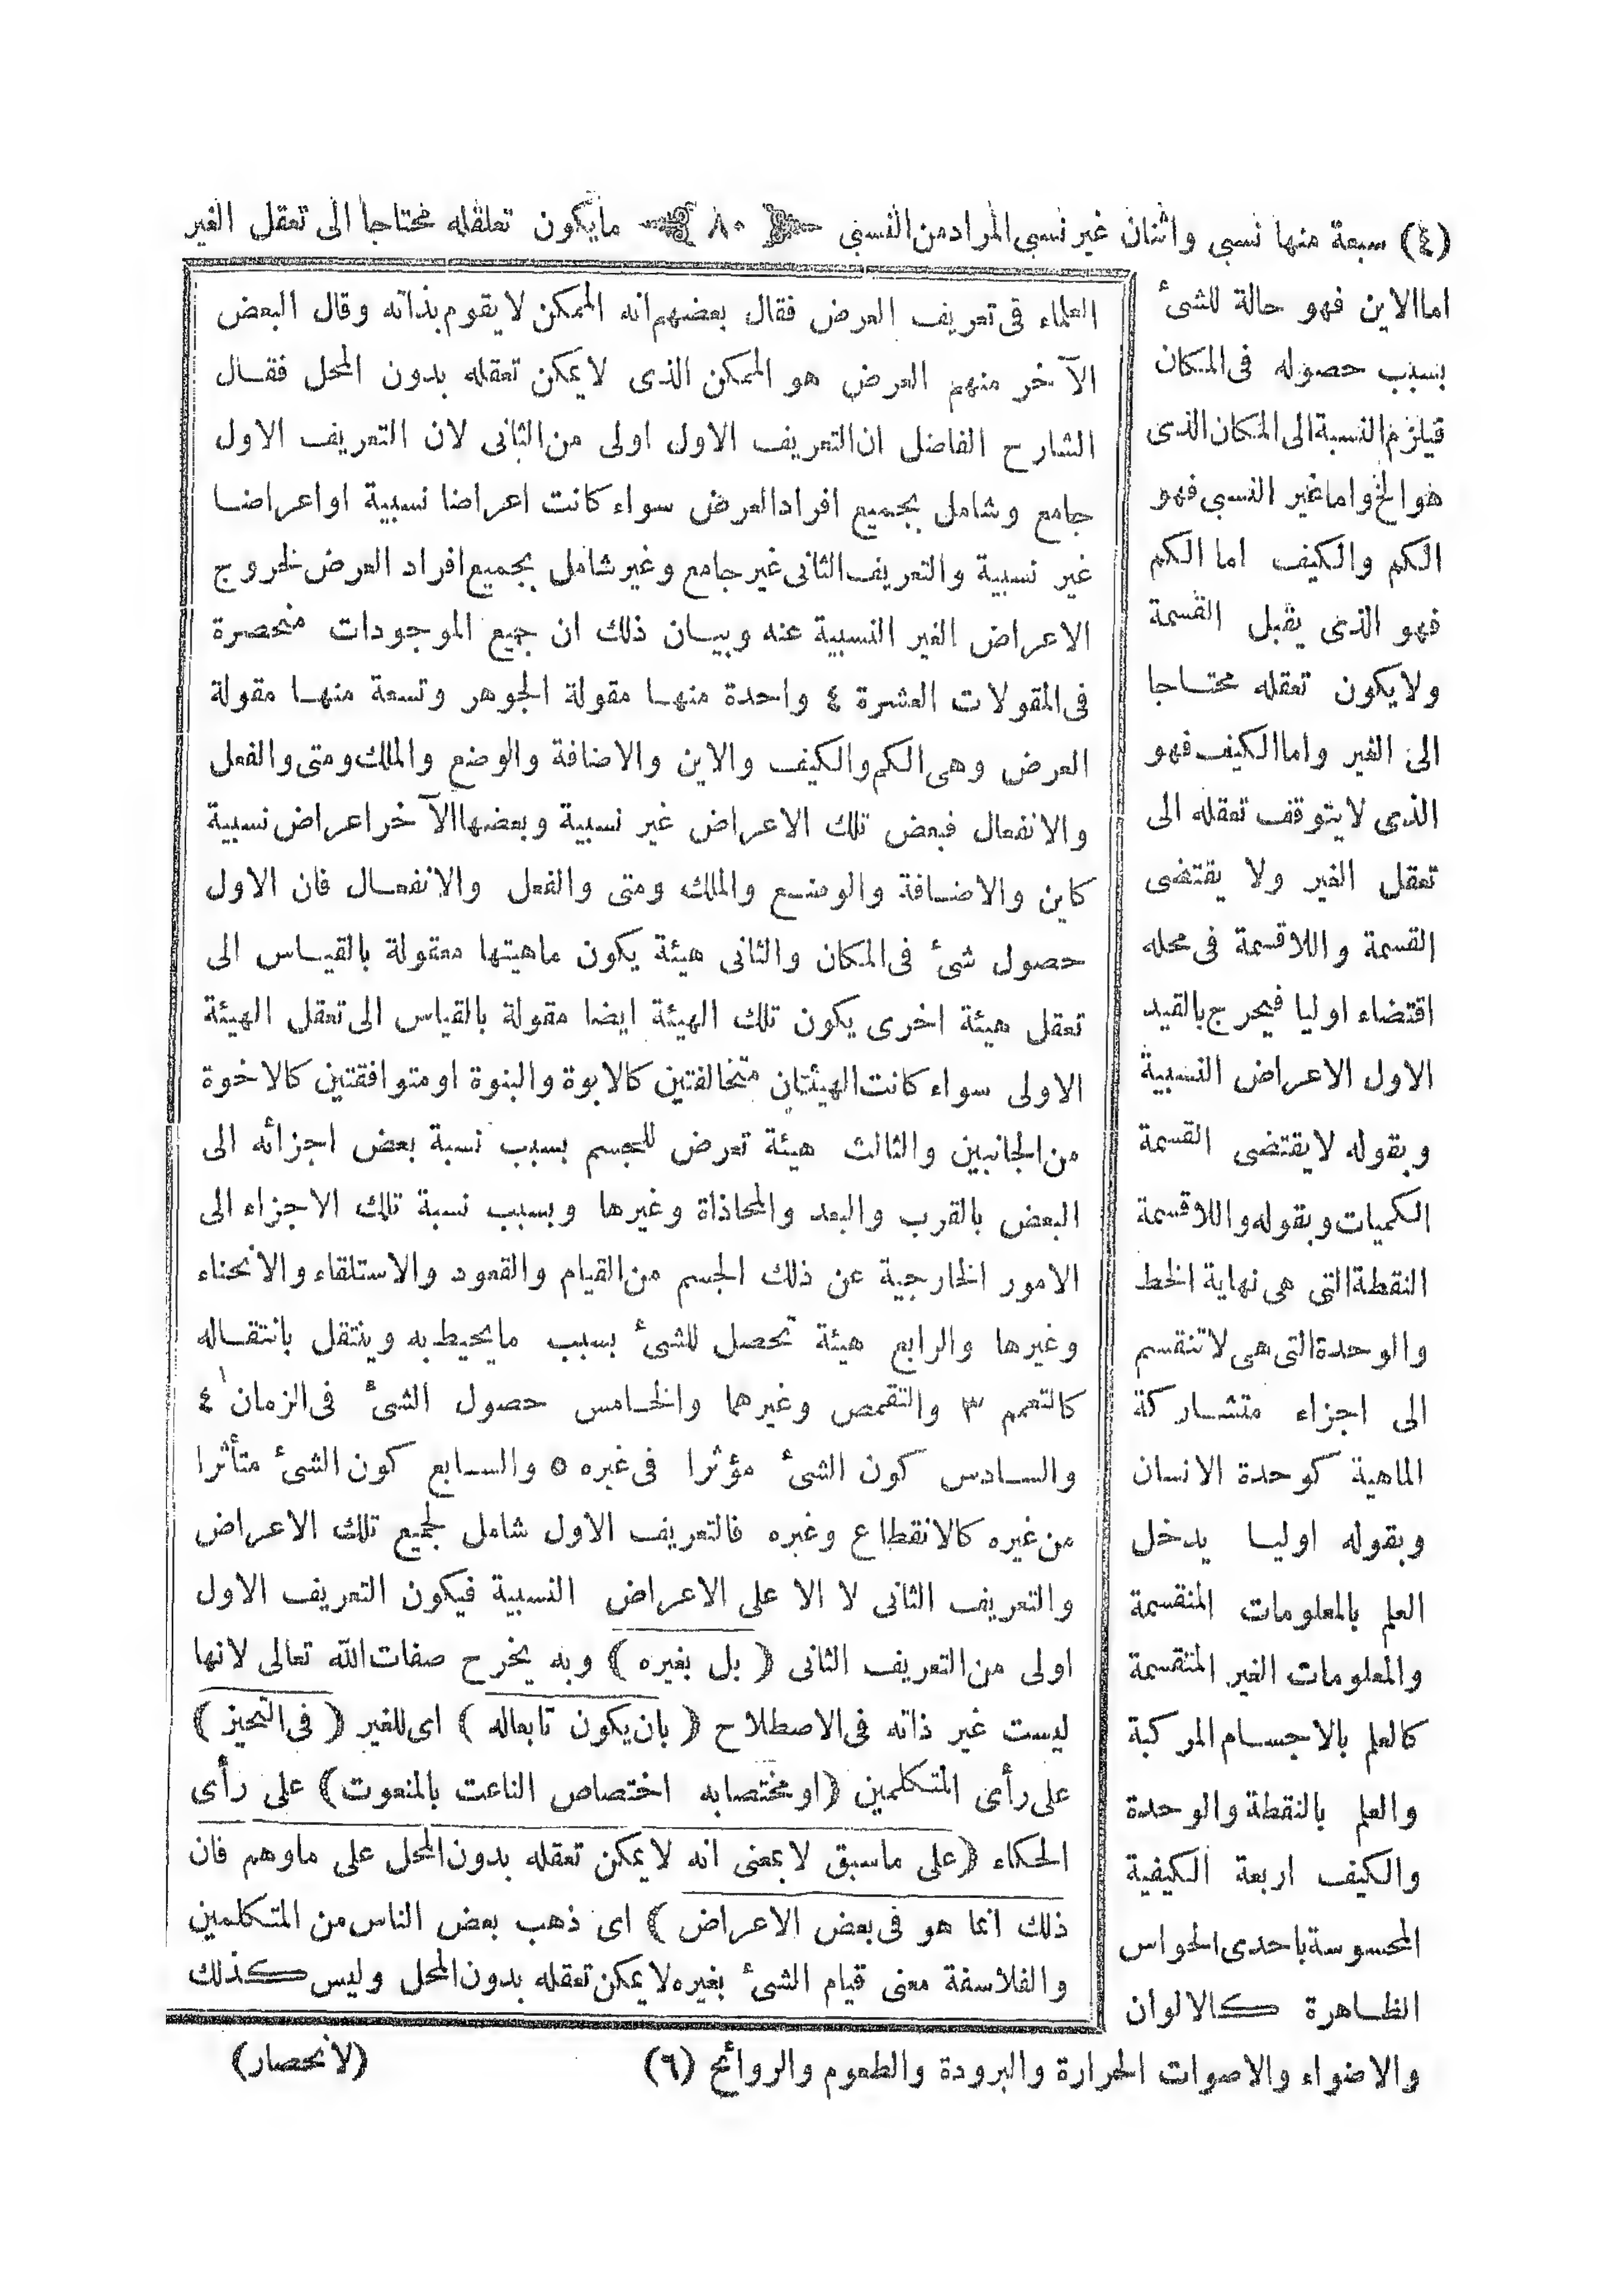 (٤) سبعة منها نسبى واثنان غير نسبى المراد من النسبى ﴿ ٨٠ ﴾ مايكون تعلقله محتاجا الى تعقل الغير
العلماء فى تعريف العرض فقال بعضهم انه الممكن لا يقوم بذاته وقال البعض
الآخر منهم العرض هو الممكن الذى لا يمكن تعقله بدون المحل فقال
الشارح الفاضل ان التعريف الاول اولى من الثانى لان التعريف الاول
جامع وشامل بجميع افراد العرض سواء كانت اعراضا نسبية او اعراضا
غير نسبية والتعريف الثانى غير جامع وغير شامل بجميع افراد العرض لخروج
الاعراض الغير النسبية عنه وبيان ذلك ان جميع الموجودات منحصرة
فى المقولات العشرة ٤ واحدة منها مقولة الجوهر وتسعة منها مقولة
العرض وهى الكم والكيف والاين والاضافة والوضع والملك ومتى والفعل
والانفعال فبعض تلك الاعراض غير نسبية وبعضها الآخر اعراض نسبية
كاين والاضافة والوضع والملك ومتى والفعل والانفعال فان الاول
حصول شئ فى المكان والثانى هيئة يكون ماهيتها معقولة بالقياس الى
تعقل هيئة اخرى يكون تلك الهيئة ايضا مقولة بالقياس الى تعقل الهيئة
الاولى سواء كانت الهيئتان متخالفتين كالابوة والبنوة او متوافقتين كالاخوة
من الجانبين والثالث هيئة تعرض للجسم بسبب نسبة بعض اجزائه الى
البعض بالقرب والبعد والمحاذاة وغيرها وبسبب نسبة تلك الاجزاء الى
الامور الخارجية عن ذلك الجسم من القيام والقعود والاستلقاء والانحناء
وغيرها والرابع هيئة تحصل للشئ بسبب مايحيط به وينتقل بانتقاله
كالتعمم ٣ والتقمص وغيرهما والخامس حصول الشئ فى الزمان ٤
والسادس كون الشئ مؤثرا فى غيره ٥ والسابع كون الشئ متأثرا
من غيره كالانقطاع وغيره فالتعريف الاول شامل لجميع تلك الاعراض
والتعريف الثانى لا الا على الاعراض النسبية فيكون التعريف الاول
اولى من التعريف الثانى ( بل بغيره ) وبه يخرج صفات الله تعالى لانها
ليست غير ذاته فى الاصطلاح ( بان يكون تابعاله ) اى للغير ( فى التحيز )
على رأى المتكلمين ( او مختصابه اختصاص الناعت بالمنعوت ) على رأى
الحكماء ( على ماسبق لا بمعنى انه لا يمكن تعقله بدون المحل على ماوهم فان
ذلك انما هو فى بعض الاعراض ) اى ذهب بعض الناس من المتكلمين
والفلاسفة معنى قيام الشئ بغيره لا يمكن تعقله بدون المحل وليس كذلك
(لانحصار)
اما الاين فهو حالة للشئ
بسبب حصوله فى المكان
فيلزم النسبة الى المكان الذى
هو الخ واما غير النسبى فهو
الكم والكيف اما الكم
فهو الذى يقبل القسمة
ولايكون تعقله محتاجا
الى الغير واما الكيف فهو
الذى لا يتوقف تعقله الى
تعقل الغير ولا يقتضى
القسمة واللاقسمة فى محله
اقتضاء اوليا فيخرج بالقيد
الاول الاعراض النسبية
وبقوله لا يقتضى القسمة
الكميات وبقوله واللاقسمة
النقطة التى هى نهاية الخط
والوحدة التى هى لا تنقسم
الى اجزاء متشاركة
الماهية كوحدة الانسان
وبقوله اوليا يدخل
العلم بالمعلومات المنقسمة
والمعلومات الغير المنقسمة
كالعلم بالاجسام المركبة
والعلم بالنقطة والوحدة
والكيف اربعة الكيفية
المحسوسة باحدى الحواس
الظاهرة كالالوان
والاضواء والاصوات الحرارة والبرودة والطعوم والروائح (٦)